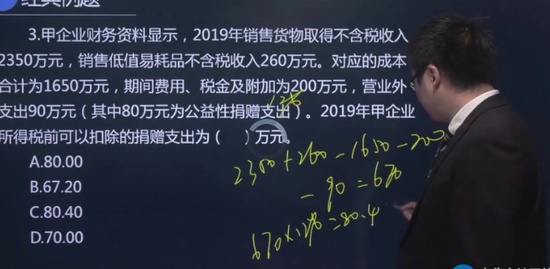 经典例题
3.甲企业财务资料显示，2019年销售货物取得不含税收入
2350万元，销售低值易耗品不含税收入260万元。对应的成本
合计为1650万元，期间费用、税金及附加为200万元，营业外
支出90万元（其中80万元为公益性捐赠支出）。2019年甲企业
12%
所得税前可以扣除的捐赠支出为（ ）万元。
A.80.00
B.67.20
C.80.40
D.70.00
2350+260-1650-200
-90=670
670×12%=80.4